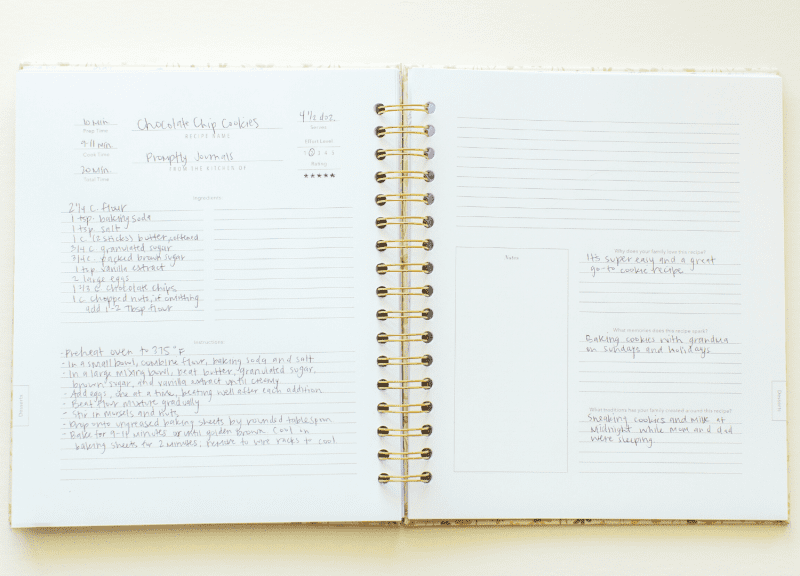 10 Min
Prep Time
Chocolate Chip Cookies
RECIPE NAME
4 1/2 doz.
Serves
9-11 Min
Cook Time
Effort Level
1 2 3 4 5
Promptly Journals
FROM THE KITCHEN OF
Rating
★★★★★
20 Min
Total Time
Ingredients
2 1/4 C. flour
1 tsp. baking soda
1 tsp. salt
1 C. (2 sticks) butter, softened
3/4 C. granulated sugar
3/4 C. packed brown sugar
1 tsp. vanilla extract
2 large eggs
chocolate chips
1 C. chopped nuts, if omitting
add 1-2 Tbsp flour
Instructions
- Preheat oven to 375° F
- In a small bowl, combine flour, baking soda and salt
- In a large mixing bowl, beat butter, granulated sugar,
brown sugar, and vanilla extract until creamy
- Add eggs, one at a time, beating well after each addition
- Beat flour mixture gradually
- Stir in morsels and nuts.
- Drop onto ungreased baking sheets by rounded tablespoon
- Bake for 9-11 minutes or until golden brown. Cool on
baking sheets for 2 minutes, remove to wire racks to cool.
Desserts
Notes
Why does your family love this recipe?
Its super easy and a great
go-to cookie recipe
What memories does this recipe spark?
Baking cookies with grandma
on Sundays and holidays
What traditions has your family created around this recipe?
Sneaking cookies and milk at
Midnight while mom and dad
were sleeping
Desserts